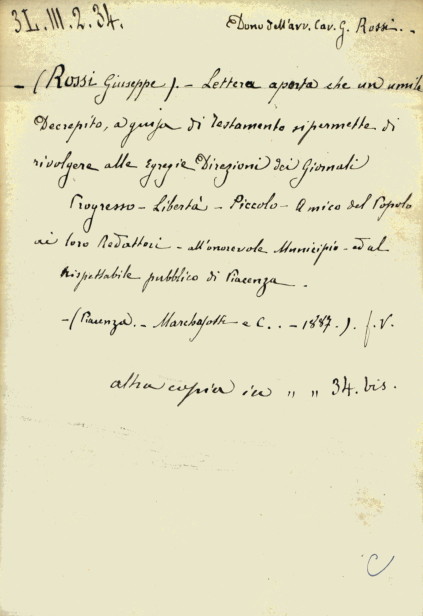 3L.III.2.34.
Dono dell'avv. Cav. G. Rossi. -
- (Rossi Giuseppe). - Lettera aperta che un umile
Decrepito, a guisa di testamento si permette di
rivolgere alle Egregie Direzioni dei Giornali
Progresso - Libertà - Piccolo - Amico del Popolo
ai loro Redattori - all'onorevole Municipio - ed al
Rispettabile pubblico di Piacenza.
- (Piacenza. - Marchesotti e C.. - 1887.). f. V.
altra copia in " " 34. bis.
C